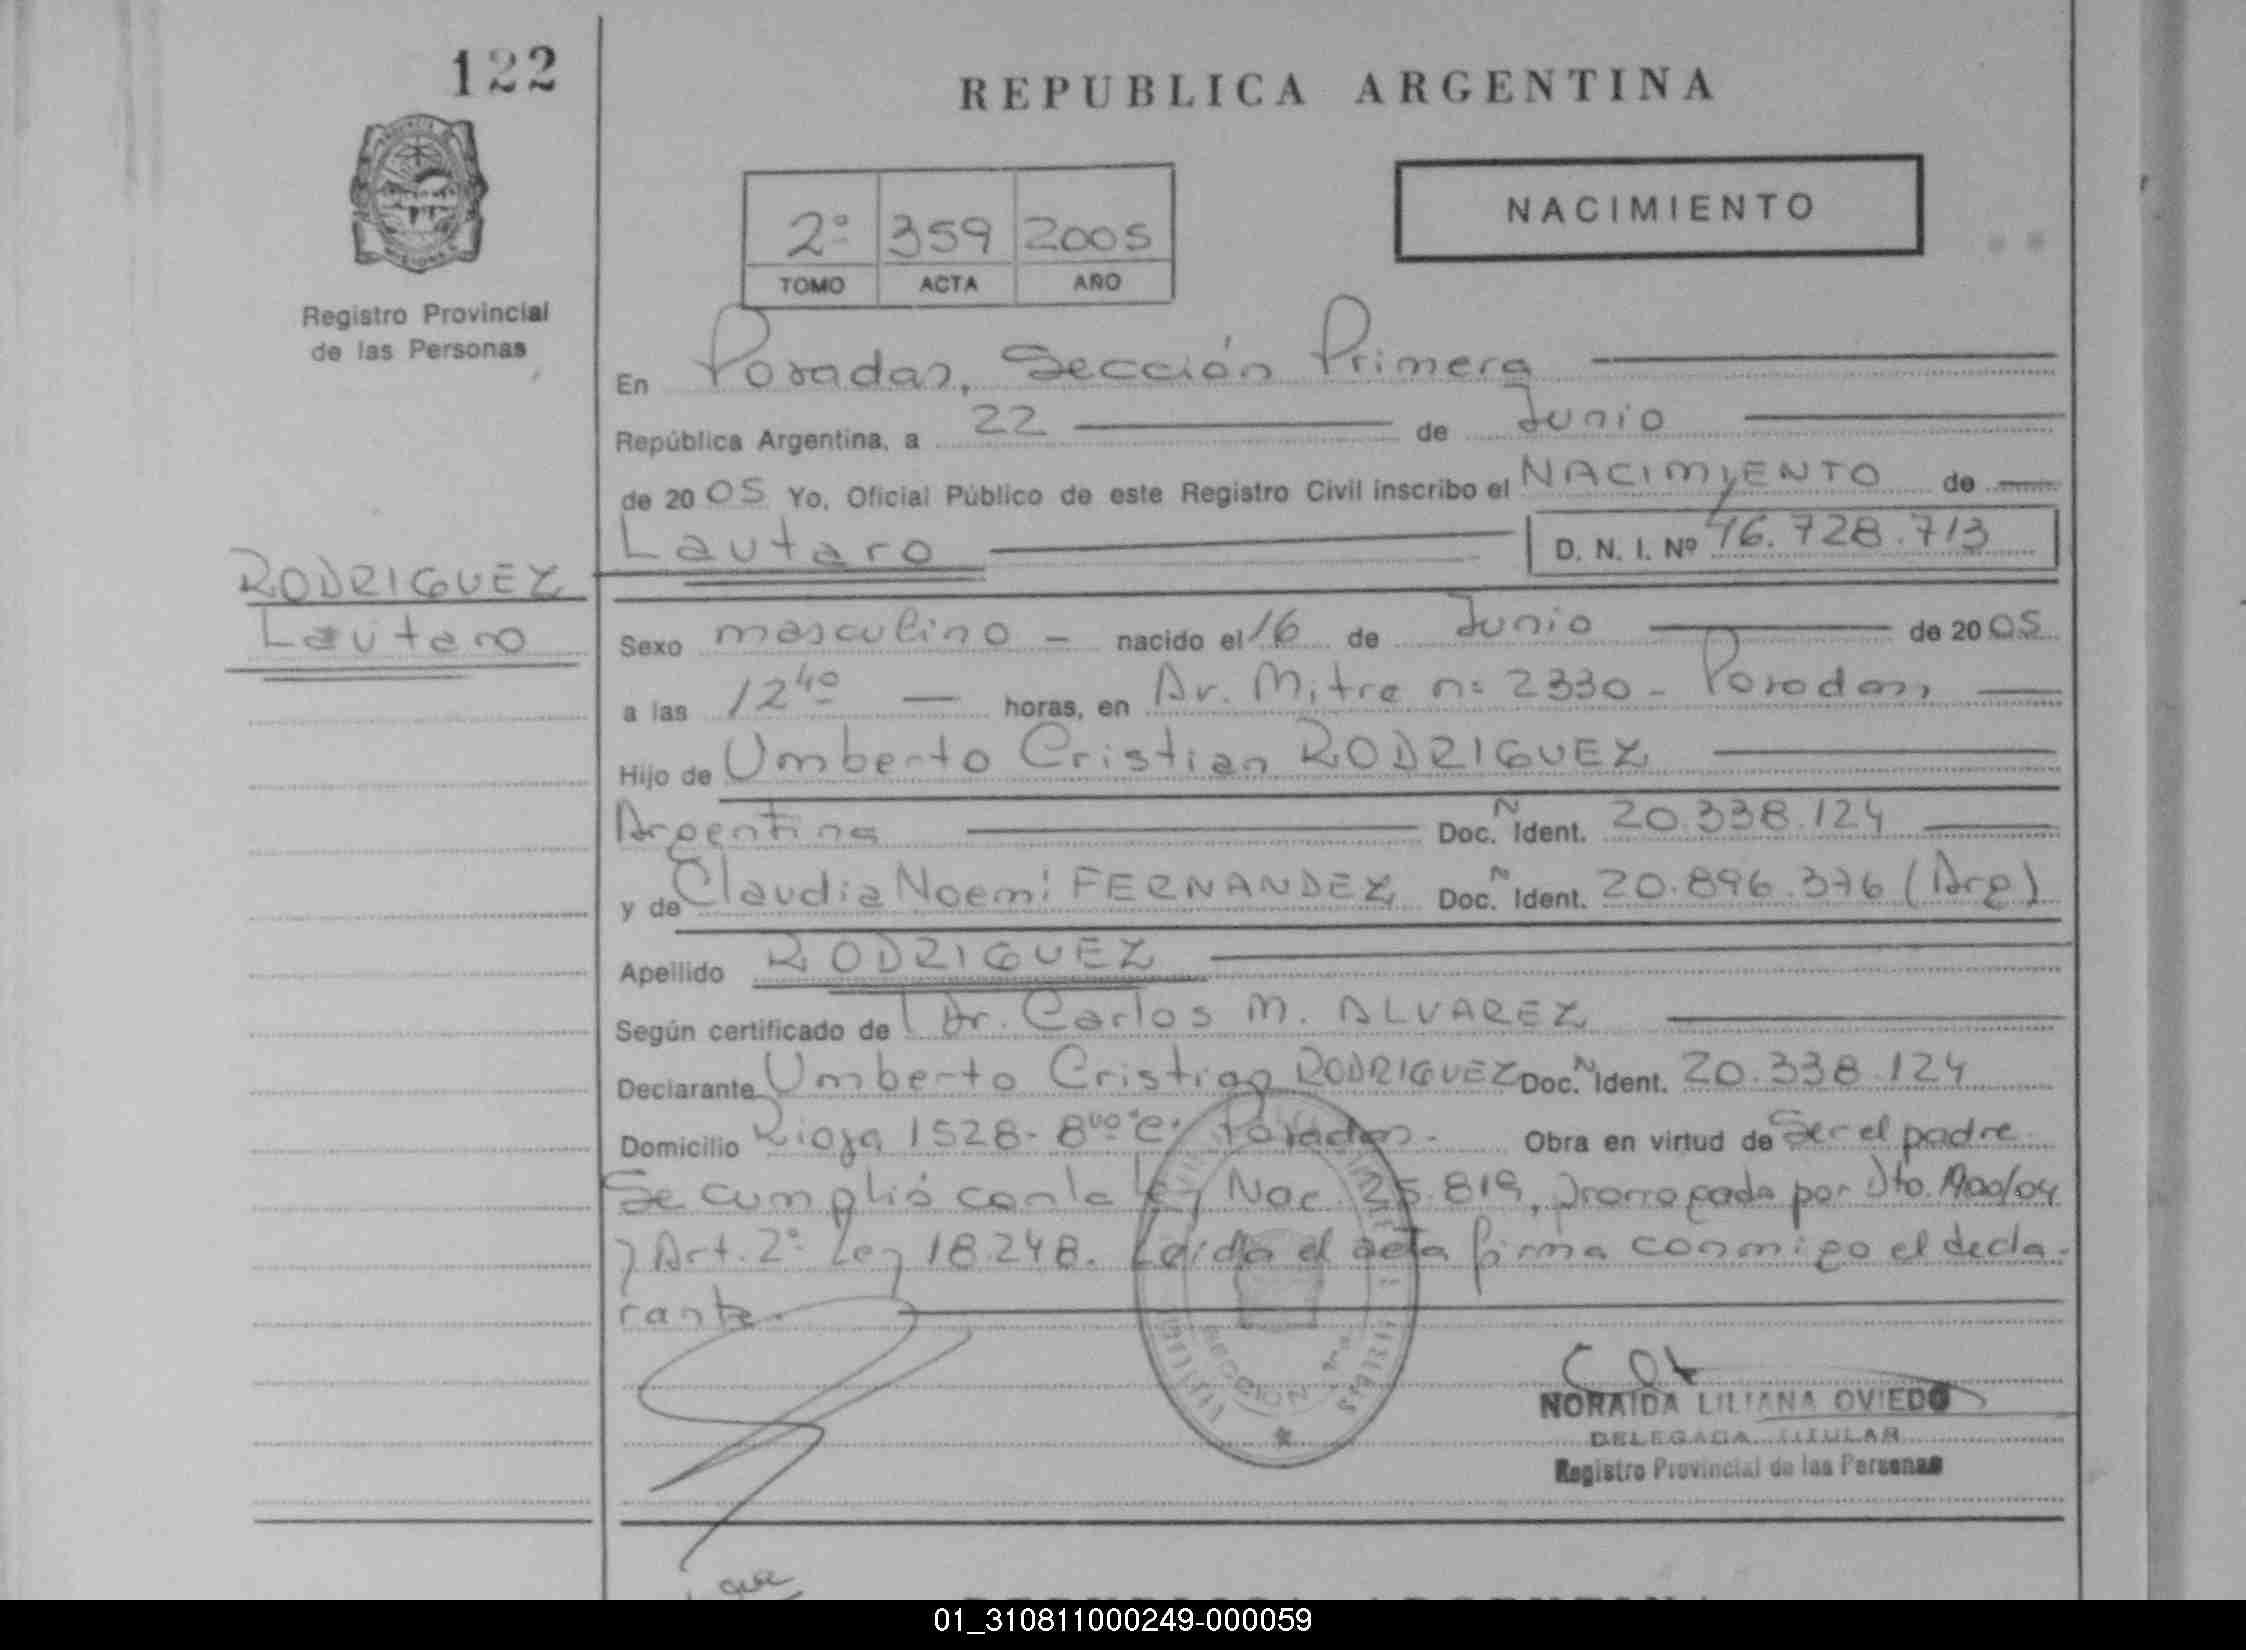 122
REPUBLICA ARGENTINA
NACIMIENTO
2º 359 2005
TOMO ACTA AÑO
Registro Provincial
de las Personas
En Posadas, Sección Primera
República Argentina, a 22 de Junio
de 2005 Yo, Oficial Público de este Registro Civil inscribo el NACIMIENTO de
Lautaro D. N. I. Nº 46.728.713
RODRIGUEZ
Lautaro
Sexo masculino - nacido el 16 de Junio de 2005
a las 12 40 horas, en Av. Mitre nº 2330 - Posadas,
Hijo de Umberto Cristian RODRIGUEZ
Argentina Doc. N Ident. 20.338.124
y de Claudia Noemí FERNANDEZ Doc. N Ident. 20.896.376 (Arg)
Apellido RODRIGUEZ
Según certificado de Dr. Carlos M. ALVAREZ
Declarante Umberto Cristian RODRIGUEZ Doc. N Ident. 20.338.124
Domicilio Rioja 1528 - 8vo "C" Posadas - Obra en virtud de Ser el padre
Se cumplió con la Ley Nac. 25.819, prorrogada por Dto. 1900/04
y Art. 2º Ley 18.248. Leída el acta firma conmigo el decla-
rante.
SECCION 1ra
NORAIDA LILIANA OVIEDO
DELEGADA TITULAR
Registro Provincial de las Personas
01_310811000249-000059